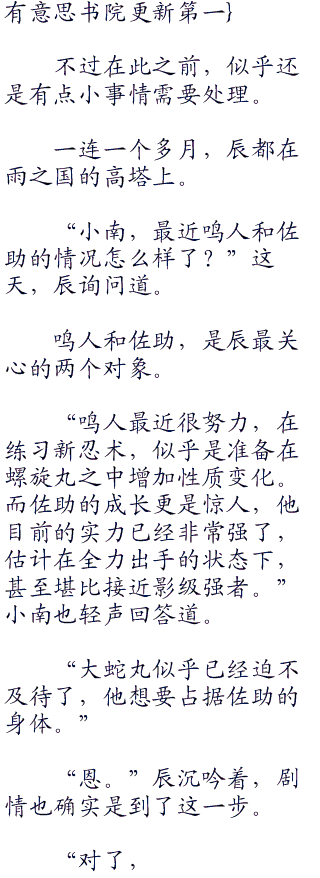 有意思书院更新第一}
不过在此之前，似乎还
是有点小事情需要处理。
一连一个多月，辰都在
雨之国的高塔上。
“小南，最近鸣人和佐
助的情况怎么样了？”这
天，辰询问道。
鸣人和佐助，是辰最关
心的两个对象。
“鸣人最近很努力，在
练习新忍术，似乎是准备在
螺旋丸之中增加性质变化。
而佐助的成长更是惊人，他
目前的实力已经非常强了，
估计在全力出手的状态下，
甚至堪比接近影级强者。”
小南也轻声回答道。
“大蛇丸似乎已经迫不
及待了，他想要占据佐助的
身体。”
“恩。”辰沉吟着，剧
情也确实是到了这一步。
“对了，